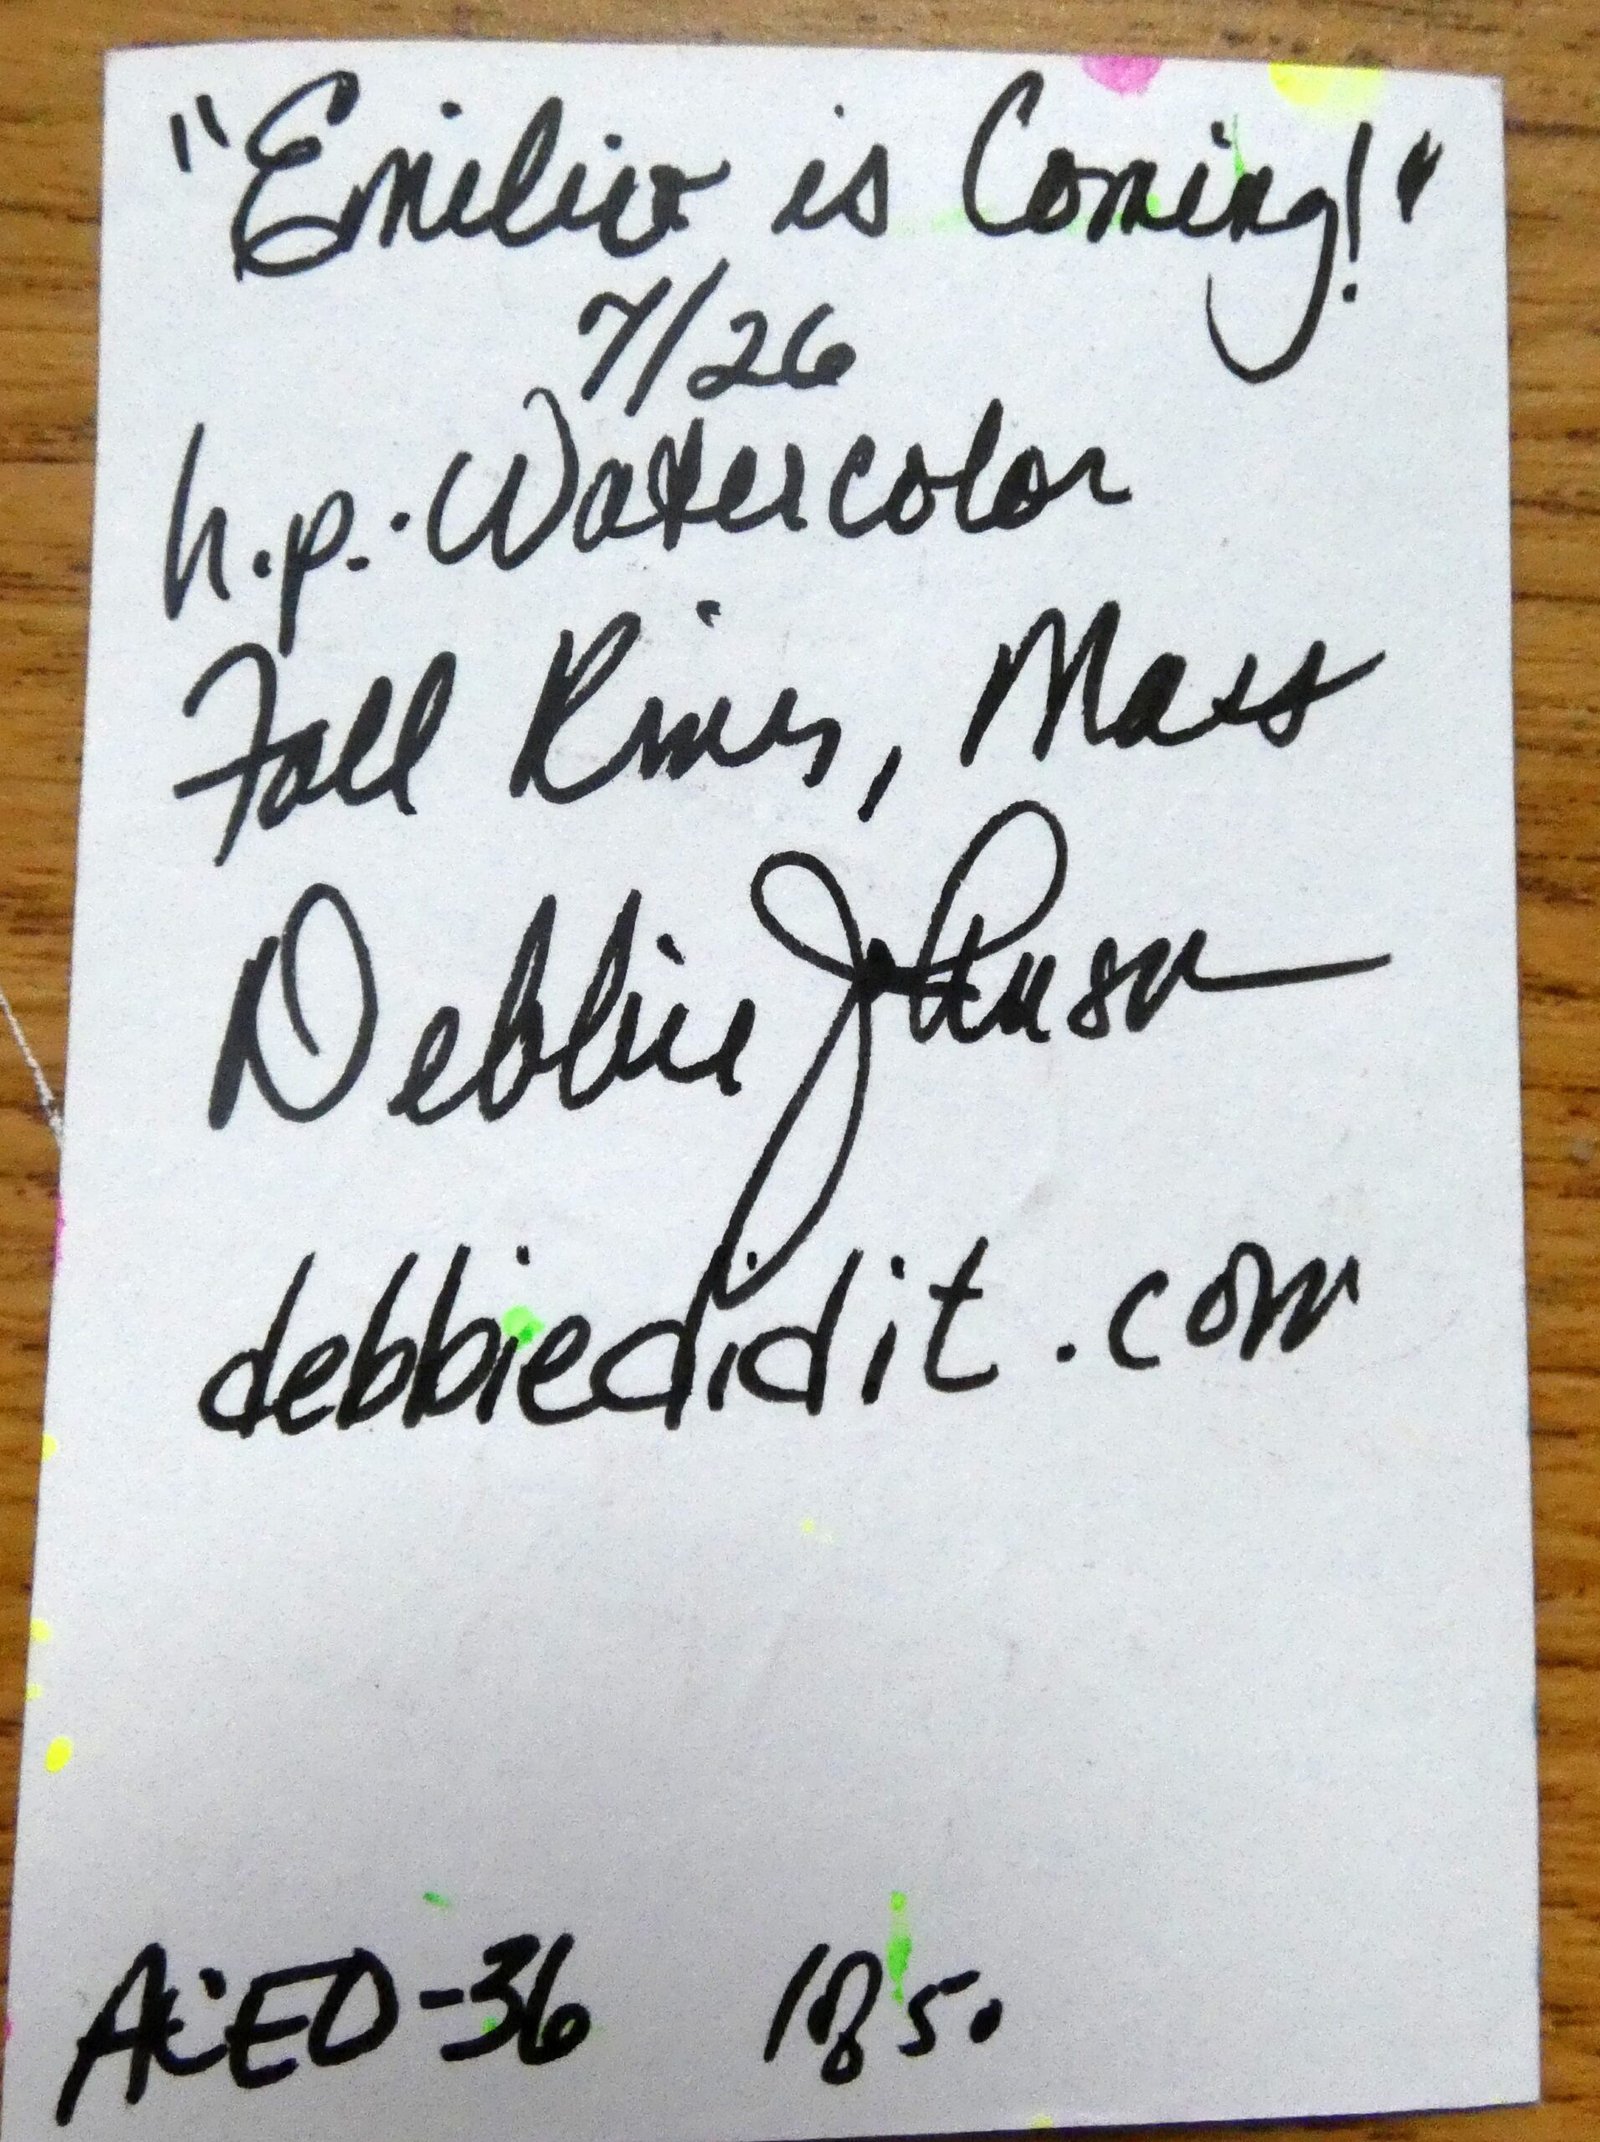 "Emilio is Coming!"
7/26
h.p. Watercolor
Fall River, Mass
Debbie Johnson
debbiedidit.com
ACEO-36 1 of 50